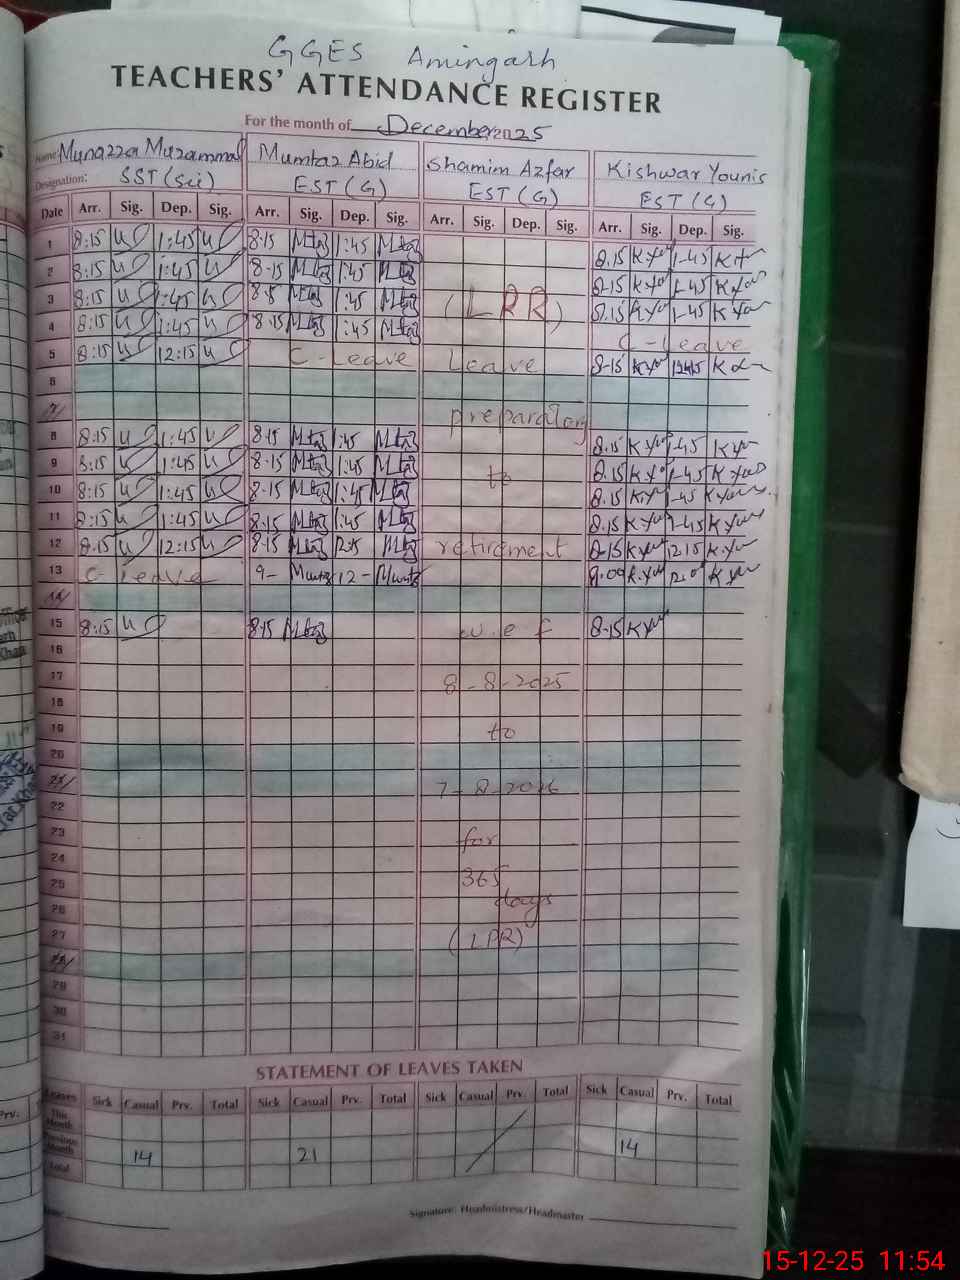 GGES Amingarh
TEACHERS' ATTENDANCE REGISTER
For the month of December 2025
Name: Munazza Muzammal Mumtaz Abid Shamim Azfar Kishwar Younis
Designation: SST (Sci) EST (G) EST (G) EST (G)
Date Arr. Sig. Dep. Sig. Arr. Sig. Dep. Sig. Arr. Sig. Dep. Sig. Arr. Sig. Dep. Sig.
1 8:15 1:45 8-15 Mtaz 1:45 Mtaz 8.15 1-45
2 8:15 1:45 8-15 Mtaz 1:45 Mtaz 8-15 1-45
3 8:15 1:45 Mtaz 1:45 Mtaz (LPR) 8.15 1-45
4 8:15 1:45 8.15 Mtaz 1:45 Mtaz C-Leave
5 8:15 12:15 C-Leave Leave 8-15
6
7 preparatory
8 8:15 1:45 8.15 Mtaz 1:45 Mtaz 8.15 1-45
9 8:15 1:45 8-15 Mtaz 1:45 Mtaz to 8.15 1-45
10 8:15 1:45 8-15 Mtaz 1:45 Mtaz 8.15 1-45
11 8:15 1:45 8-15 Mtaz 1:45 Mtaz 8.15 1-45
12 8:15 12:15 8-15 Mtaz Mtaz retirement 8-15 12.15
13 C-Leave 9- Mumtaz 12- Mumtaz 9.00
14
15 8:15 8-15 Mtaz w.e.f 8-15
16
17 8-8-2025
18
19 to
20
21 7-8-2026
22
23 for
24
25 365
26 days
27 (LPR)
28
29
30
31
STATEMENT OF LEAVES TAKEN
Leaves Sick Casual Prv. Total Sick Casual Prv. Total Sick Casual Prv. Total Sick Casual Prv. Total
This Month
Previous Month 14 21 14
Total
Signature: Headmistress/Headmaster
Prv.
15-12-25 11:54